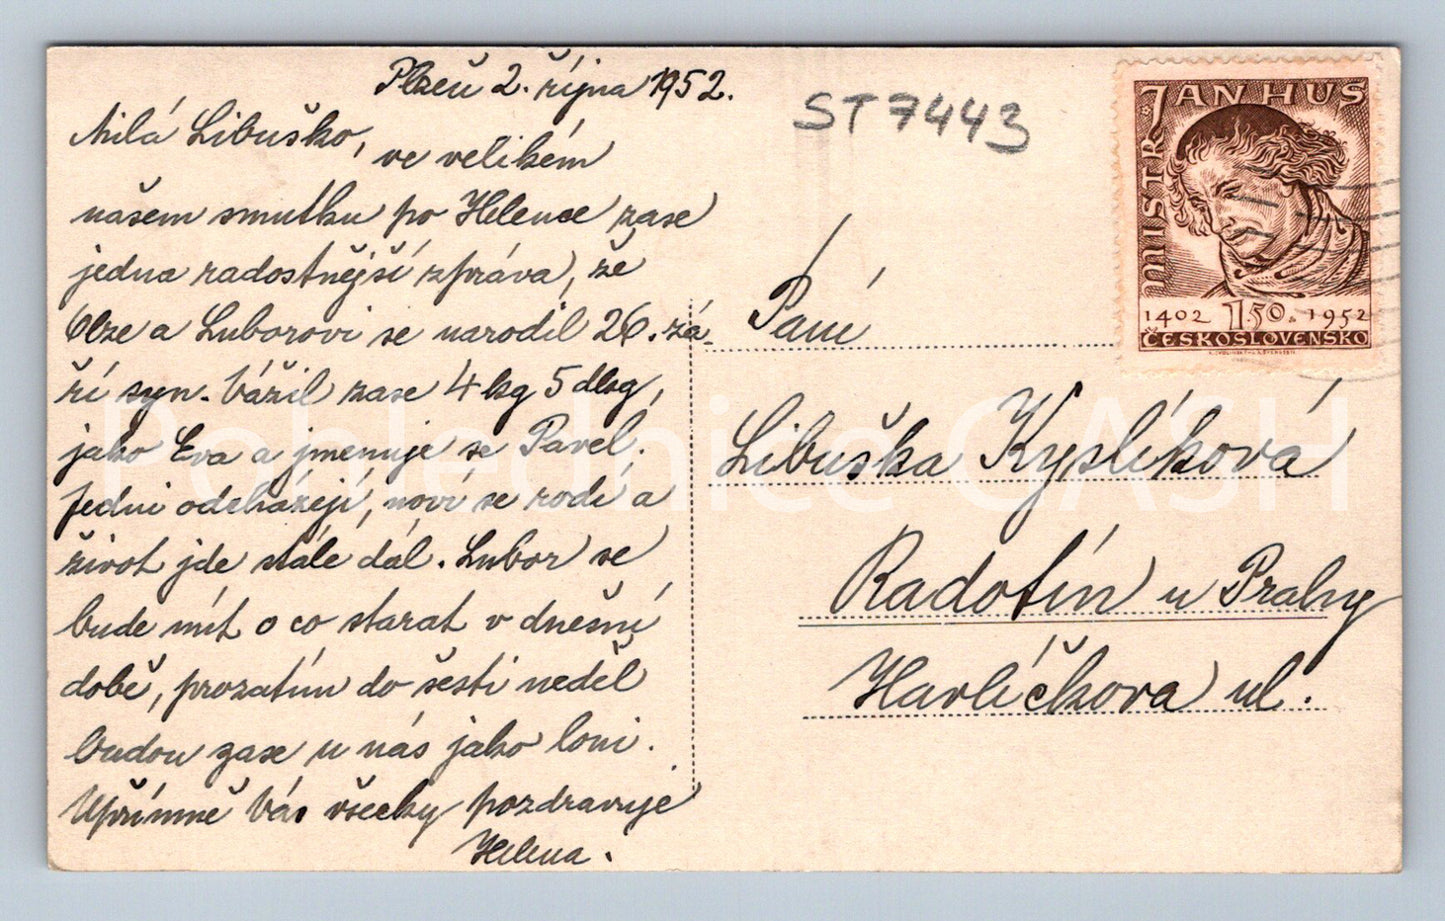 Plzeň 2. října 1952.
Milá Libuško,
ve velikém
našem smutku po Helence zase
jedna radostnější zpráva, že
Olze a Luborovi se narodil 26. zá-
ří syn. Vážil zase 4 kg 5 dkg,
jako Eva a jmenuje se Pavel.
Jedni odcházejí, noví se rodí a
život jde stále dál. Lubor se
bude mít o co starat v dnešní
době, prozatím do šesti neděl
budou zase u nás jako loni.
Upřímně Vás všecky pozdravuje
Helena.
ST 7443
MISTR JAN HUS
1402 1.50 1952
ČESKOSLOVENSKO
Paní
Libuška Kyslíková
Radotín u Prahy
Havlíčkova ul.
Pohlednice CASH